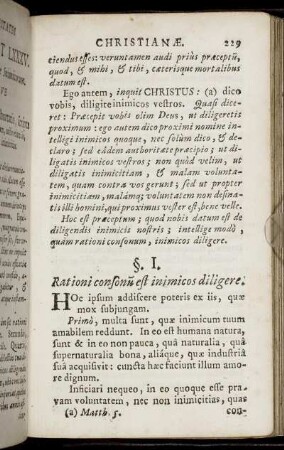 CHRISTIANÆ. 229
ciendus esses: veruntamen audi priùs præceptũ,
quod, & mihi, & tibi, cæterisque mortalibus
datum est.
Ego autem, inquit CHRISTUS: (a) dico
vobis, diligite inimicos vestros. Quasi dice-
ret: Præcepit vobis olim Deus, ut diligeretis
proximum: ego autem dico proximi nomine in-
telligi inimicos quoque, nec solùm dico, & de-
claro; sed eâdem authoritate præcipio; ut di-
ligatis inimicos vestros; non quòd velim, ut
diligatis inimicitiam, & malam volunta-
tem, quam contra vos gerunt; sed ut propter
inimicitiam, malamq; voluntatem non desina-
tis illi homini, qui proximus vester est, bene velle.
Hoc est præceptum; quod nobis datum est de
diligendis inimicis nostris; intellige modò,
quàm rationi consonum, inimicos diligere.
§. I.
Rationi consonũ est inimicos diligere.
HOc ipsum addiscere poteris ex iis, quæ
mox subjungam.
Primò, multa sunt, quæ inimicum tuum
amabilem reddunt. In eo est humana natura,
sunt & in eo non pauca, quâ naturalia, quâ
supernaturalia bona, aliáque, quæ industriâ
suâ acquisivit: cuncta hæc faciunt illum amo-
re dignum.
Inficiari nequeo, in eo quoque esse pra-
vam voluntatem, nec non inimicitias, quas
(a) Matth. 5. con-